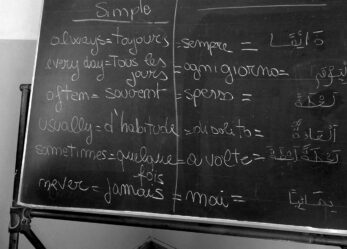 Simple
always = toujours = sempre = دَائِمًا
every day = tous les
jours = ogni giorno =
often = souvent = spesso =
usually = d'habitude = di solito =
sometimes = quelque = a volte =
fois
never = jamais = mai =